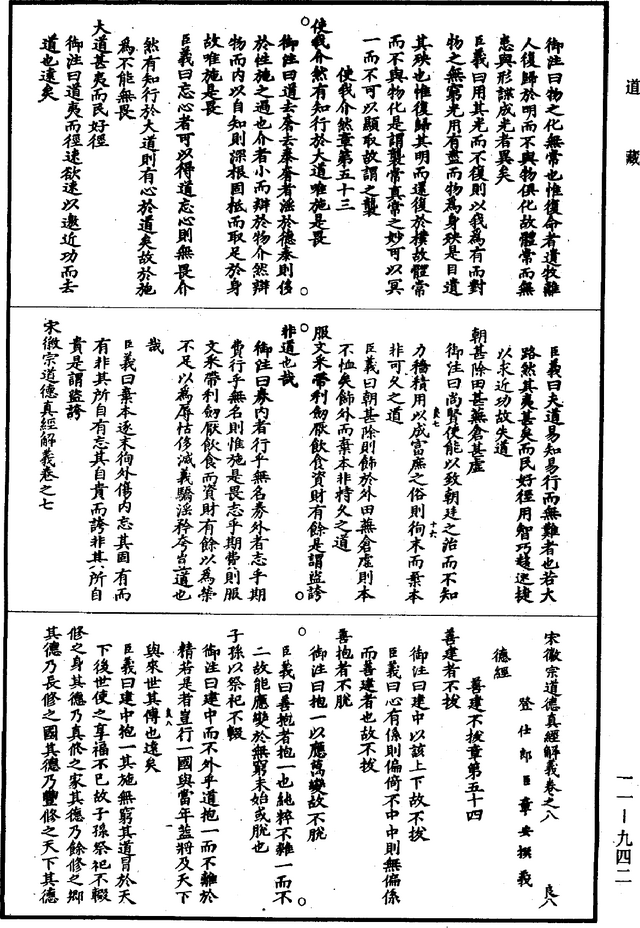 道藏
御注曰物之化無常也惟復命者遺物離
人復歸於明而不與物俱化故體常而無
患與形諜成光者異矣
臣義曰用其光而不復則以我為有而對
物之無窮光用有盡而物為身殃是目遺
其殃也惟復歸其明而還復於樸故體常
而不與物化是謂襲常真常之妙可以冥
一而不可以顯取故謂之襲
使我介然章第五十三
使我介然有知行於大道唯施是畏
御注曰道去奢去泰奢者淫於德泰則侈
於性施之過也介者小而辯於物介然辯
物而內以自知則深根固柢而取足於身
故唯施是畏
臣義曰忘心者可以得道忘心則無畏介
然有知行於大道則有心於道矣故於施
為不能無畏
大道甚夷而民好徑
御注曰道夷而徑速欲速以邀近功而去
道也遠矣
臣義曰夫道易知易行而無難者也若大
路然其夷甚矣而民好徑用智巧趍速捷
以求近功故失道
朝甚除田甚蕪倉甚虛
御注曰尚賢使能以致朝廷之治而不知
力穡積用以成富庶之俗則徇末而棄本
非可久之道
臣義曰朝甚除則飾於外田蕪倉虛則本
不恤矣飾外而棄本非持久之道
服文采帶利劒厭飲食資財有餘是謂盜誇
非道也哉
御注曰券內者行乎無名券外者志乎期
費行乎無名則惟施是畏志乎期費則服
文采帶利劒厭飲食而資財有餘以為榮
不足以為辱怙侈滅義驕淫矜夸豈道也
哉
臣義曰棄本逐末徇外傷內忘其固有而
有非其所自有忘其自貴而誇非其所自
貴是謂盜誇
宋徽宗道德真經解義卷之七
良七
十六
宋徽宗道德真經解義卷之八
良八
登仕郎臣章安撰義
德經
善建不拔章第五十四
善建者不拔
御注曰建中以該上下故不拔
臣義曰心有係則偏倚不中中則無偏係
而善建者也故不拔
善抱者不脫
御注曰抱一以應萬變故不脫
臣義曰善抱者抱一也純粹不雜一而不
二故能應變於無窮未始或脫也
子孫以祭祀不輟
御注曰建中而不外乎道抱一而不離於
精若是者豈行一國與當年蓋將及天下
與來世其傳也遠矣
良八
臣義曰建中抱一其施無窮其道冒於天
下後世使之享福不已故子孫祭祀不輟
修之身其德乃真修之家其德乃餘修之鄉
其德乃長修之國其德乃豐修之天下其德
一一—九四二